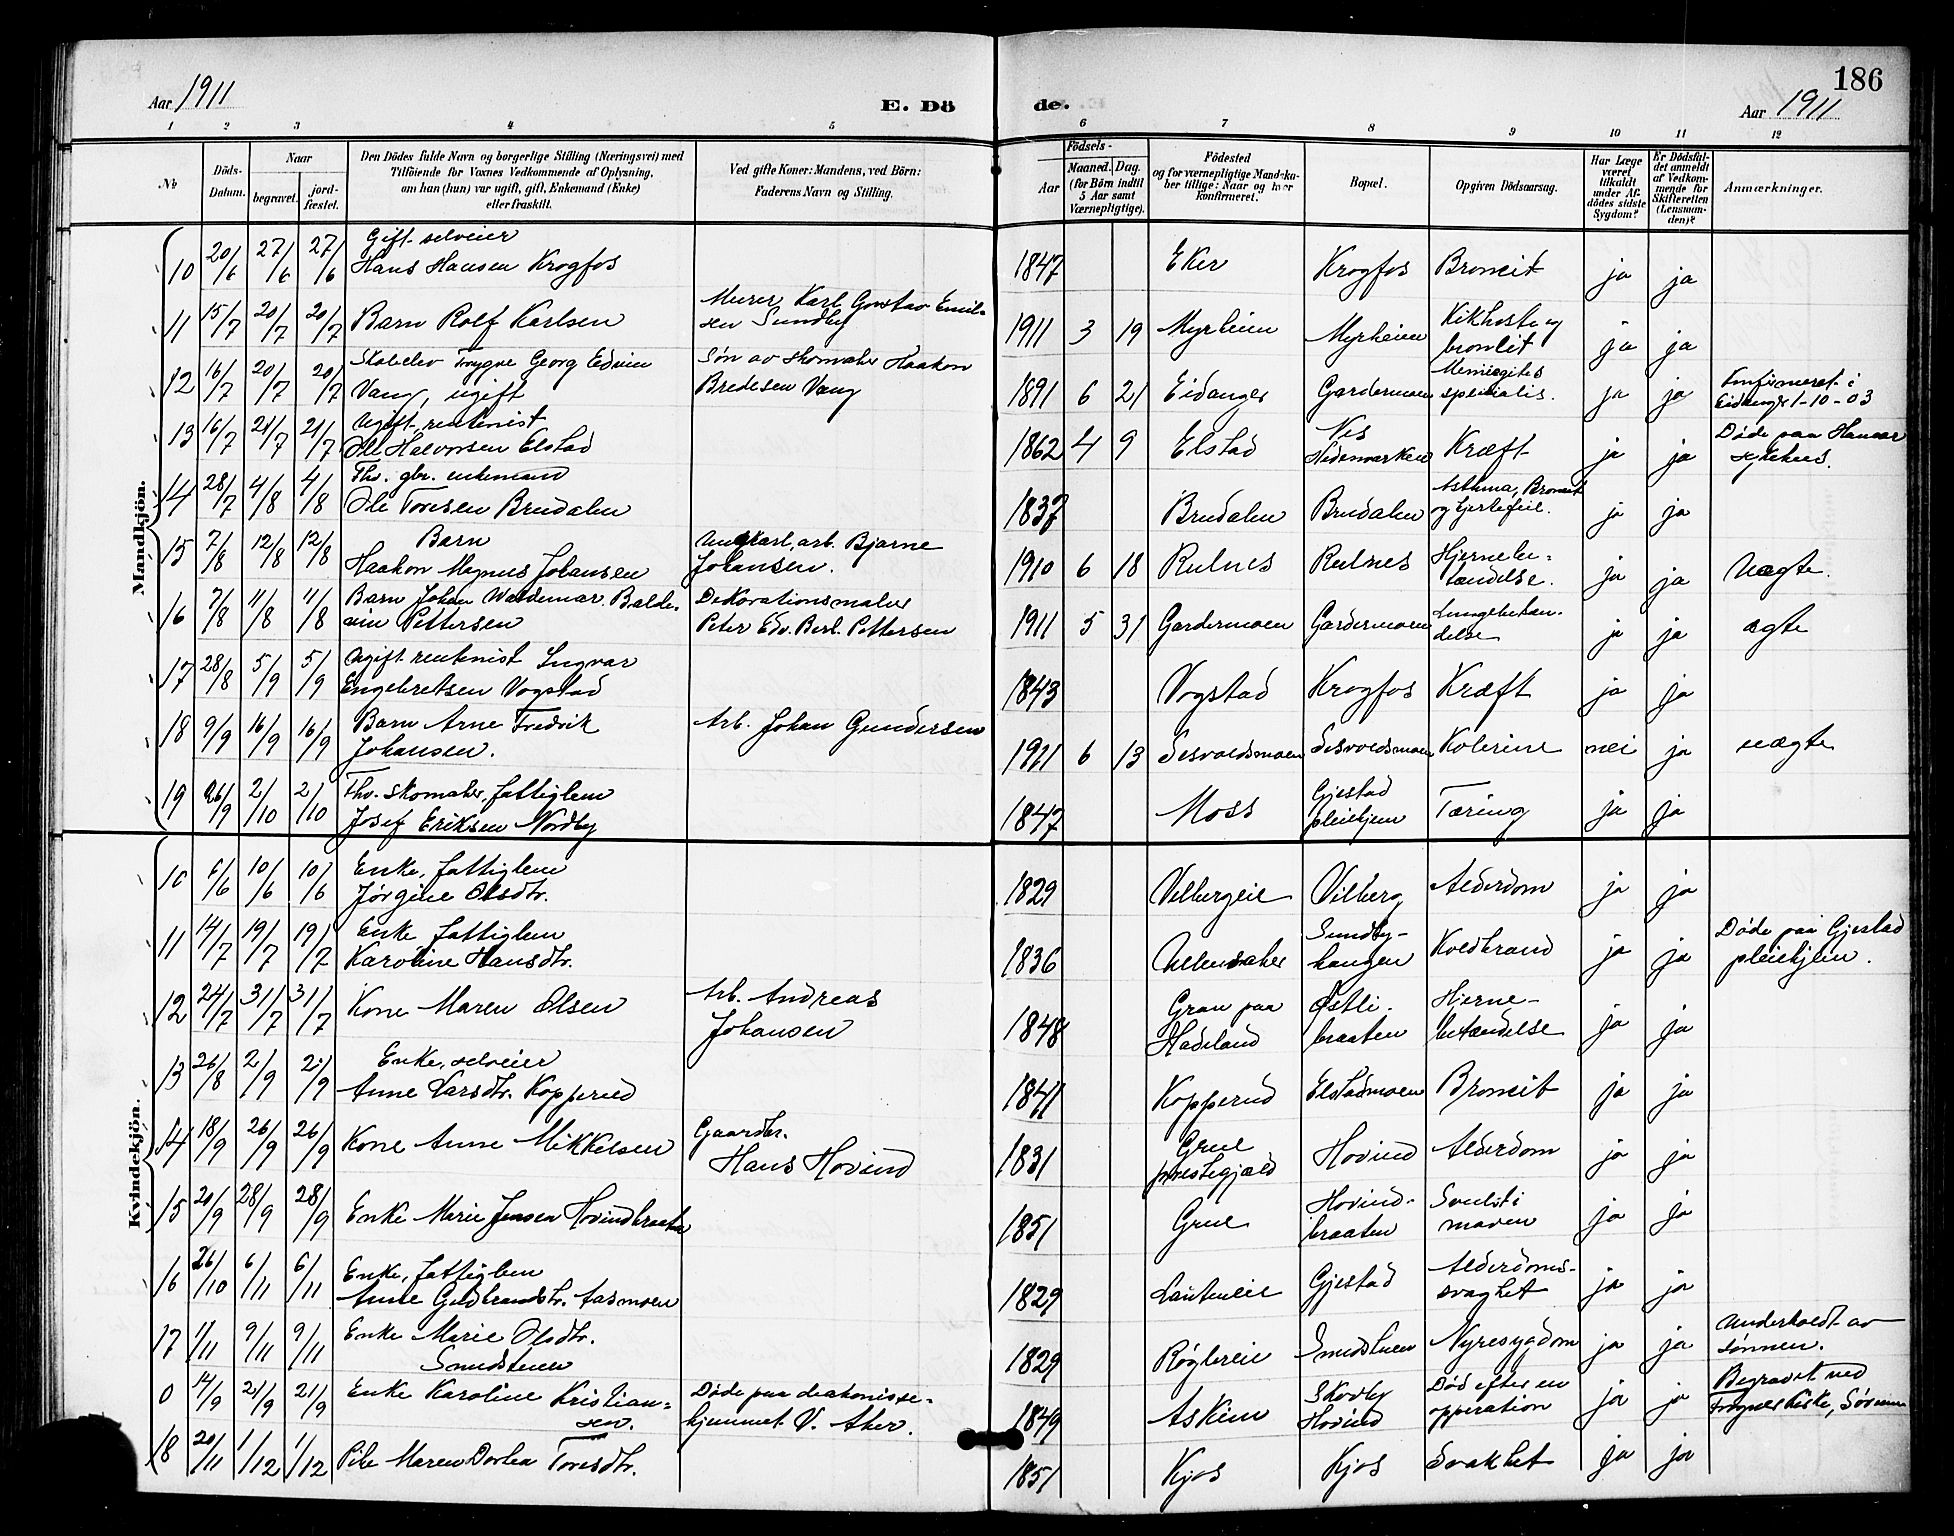 Aar 1911
E. Dö
de.
186
Aar 1911
1 2 3 4 5 6 7 8 9 10 11 12
№
Döds-Datum.
Naar
begravet.
jord-fæstet.
Den Dödes fulde Navn og borgerlige Stilling (Næringsvei) med
Tilföiende for Voxnes Vedkommende af Oplysning,
om han (hun) var ugift, gift, Enkemand (Enke)
eller fraskilt.
Ved gifte Koner: Mandens, ved Börn:
Faderens Navn og Stilling.
Födsels-
Aar
Maaned. Dag.
(for Börn indtil
5 Aar samt
Værnepligtige).
Födested
og for værnepligtige Mandska-
ber tillige: Naar og hvor
konfirmeret.
Bopæl.
Opgiven Dödsaarsag.
Har Læge
været
tilkaldt
under Af-
dödes sidste
Sygdom?
Er Dödsfal-
det anmeldt
af Vedkom-
mende for
Skifteretten
(Lensman-
den)?
Anmærkninger.
Mandkjön.
10 20/6 27/6 27/6 Gift selveier
Hans Hansen Krogfos 1847 Eker Krogfos Broncit ja ja
11 15/7 20/7 20/7 Barn Rolf Karlsen Murer Karl Gustav Emil-
sen Sundby 1911 3 19 Myrheim Myrheim Kikhoste og
broncit ja ja
12 16/7 20/7 20/7 Skoleelev Trygve Georg Edvin
Vang, ugift Søn av skomaker Haakon
Bredesen Vang 1891 6 21 Eidanger Gardermoen Meningites
specialis. ja ja Confirmeret i
Eidanger 1-10-03
13 16/7 21/7 21/7 Ugift, rentenist
Ole Halvorsen Elstad 1862 4 9 Elstad Nes
Hedemarken Kræft ja ja Døde paa Hamar
sykehus.
14 28/7 4/8 4/8 Fhv. gbr. enkemand
Ole Toresen Brudalen 1837 Brudalen Brudalen Asthma, Broncit
og hjertefeil. ja ja
15 7/8 12/8 12/8 Barn
Haakon Magnus Johansen Ungkarl, arb. Bjarne
Johansen. 1910 6 18 Rulnes Rulnes Hjernebe-
tændelse. ja ja Uægte.
16 7/8 11/8 11/8 Barn Johan Waldemar Balde-
vin Pettersen Dekorationsmaler
Peter Edv. Berl. Pettersen 1911 5 31 Gardermoen Gardermoen Lungebetæn-
delse ja ja ægte
17 28/8 5/9 5/9 Ugift rentenist Ingvar
Engebretsen Vogstad 1843 Vogstad Krogfos Kræft ja ja
18 9/9 16/9 16/9 Barn Arne Fredrik
Johansen. Arb. Johan Gundersen 1911 6 13 Sesvoldsmoen Sesvoldsmoen Kolerine nei ja uægte
19 26/9 2/10 2/10 Fhv. skomaker, fattiglem
Josef Eriksen Nordby 1847 Moss Gjestad
pleiehjem Tæring ja ja
Kvindekjön.
10 6/6 10/6 10/6 Enke, fattiglem
Jørgine Olsdtr. 1829 Vilbergeie Vilberg Alderdom ja ja
11 14/7 19/7 19/7 Enke fattiglem
Karoline Hansdtr. 1836 Ullensaker Sundby-
haugen Koldbrand ja ja Døde paa Gjestad
pleiehjem.
12 24/7 31/7 31/7 Kone Maren Olsen Arb. Andreas
Johansen 1848 Gran paa
Hadeland Østli-
braaten Hjerne-
betændelse ja ja
13 26/8 2/9 2/9 Enke, selveier
Anne Larsdtr. Kopperud 1841 Kopperud Elstadmoen Broncit ja ja
14 18/9 26/9 26/9 Kone Anne Mikkelsen Gaardbr.
Hans Hovind 1831 Grue
prestegjæld Hovind Alderdom ja ja
15 20/9 28/9 28/9 Enke Marie Jensen Hovindbraaten 1851 Grue Hovind-
braaten Svulst i
maven ja ja
16 26/10 6/11 6/11 Enke, fattiglem
Anne Guldbrandsdtr. Aasmoen 1829 Gjestad Alderdoms-
svaghet ja ja
17 1/11 9/11 9/11 Enke Marie Olsdtr.
Smedstuen 1829 Røglereie Smedstuen Nyresygdom ja ja Underholdt av
sønnen.
0 14/9 21/9 21/9 Enke Karoline Kristian-
sen. Døde paa diakonisse-
hjemmet V. Aker. 1849 Askim Skovly
Hovind Død efter en
opperation ja ja Begravet ved
Frogner kirke, Sørum
18 20/11 1/12 1/12 Pike Maren Dorthea Toresdtr. 1851 Kjos Kjos Svakhet ja ja